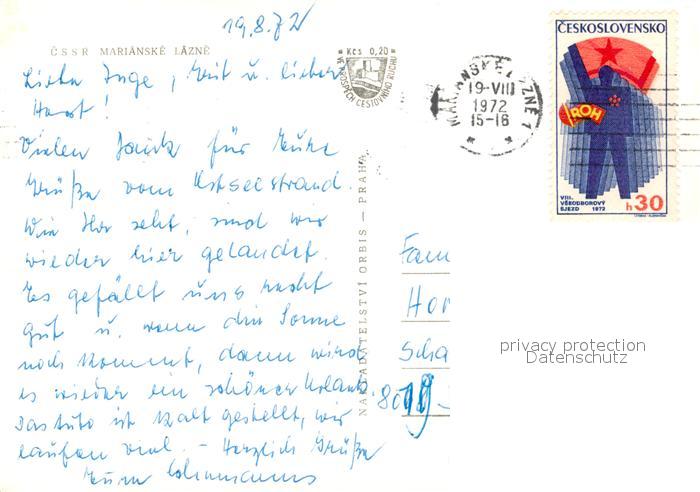 19.8.72
ČSSR MARIÁNSKÉ LÁZNĚ
Liebe Inge, Veit u. lieber
Horst!
Vielen Dank für Eure
Grüße vom Ostseestrand.
Wie Ihr seht, sind wir
wieder hier gelandet.
Es gefällt uns recht
gut u. wenn die Sonne
noch kommt, dann wird
es wieder ein schöner Urlaub
Das Auto ist kalt gestellt, wir
laufen viel. – Herzlich Grüße
Eure
NAKLADATELSTVÍ ORBIS — PRAHA
Kčs 0,20
VE PROSPĚCH CESTOVNÍHO RUCHU
MARIÁNSKÉ LÁZNĚ 1
19-VIII
1972
15-16
ČESKOSLOVENSKO
ROH
VIII.
VŠEODBOROVÝ
SJEZD 1972
h30
Fam
Hor
Scha
privacy protection
Datenschutz